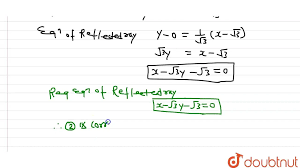 Eqⁿ of Reflected ray y-0 = 1/√3 (x-√3)
√3y = x-√3
x-√3y-√3=0
Req Eqⁿ of Reflected ray
x-√3y-√3=0
∴ ② is corr
doubtnut